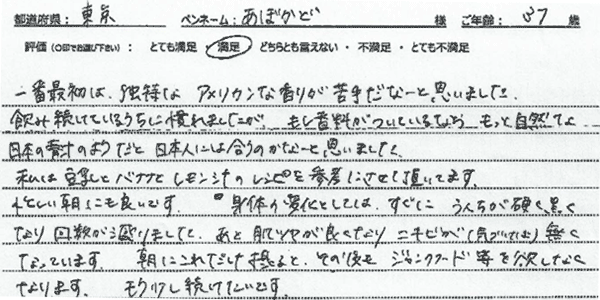 都道府県： 東京 ペンネーム：あぼかど 様 ご年齢： 37 歳
評価（○印でお選び下さい）： とても満足 ・ 満足 ・ どちらとも言えない ・ 不満足 ・ とても不満足
一番最初は、独特な アメリカンな香りが苦手だなーと思いました。
飲み続けているうちに慣れましたが、もし香料がついているなら、もっと自然で
日本の青汁のようだと日本人には合うのかなーと思いました。
私は豆乳とバナナとレモン汁のレシピを参考にさせて頂いてます。
忙しい朝にも良いです。 身体の変化としては、すぐに うんちが硬く、黒く
なり回数が減りました。あと肌ツヤが良くなり ニキビが（気づいては）無く
なっています。 朝にこれだけ摂ると、その後も ジャンクフード等を欲しなく
なります。 もう少し続けたいです。